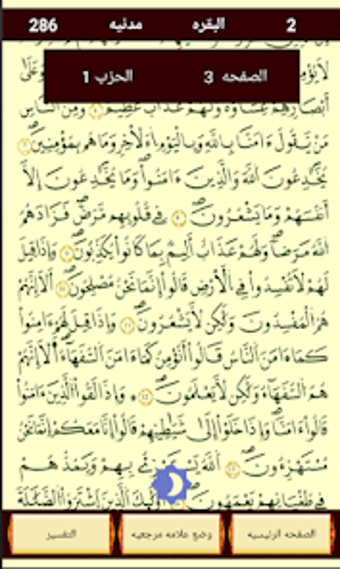 2 البقره مدنيه 286
الصفحه 3 الحزب 1
أبصارهم غشاوة ولهم عذاب عظيم ومن الناس
من يقول ءامنا بالله وباليوم الأخر وما هم بمؤمنين
يخدعون الله والذين ءامنوا وما يخدعون إلا
أنفسهم وما يشعرون في قلوبهم مرض فزادهم
الله مرضا ولهم عذاب أليم بما كانوا يكذبون وإذا قيل
لهم لا تفسدوا في الأرض قالوا إنما نحن مصلحون ألا إنهم
هم المفسدون ولكن لا يشعرون وإذا قيل لهم ءامنوا
كما ءامن الناس قالوا أنؤمن كما ءامن السفهاء ألا إنهم
هم السفهاء ولكن لا يعلمون وإذا لقوا الذين ءامنوا
قالوا ءامنا وإذا خلوا إلى شيطينهم قالوا إنا معكم إنما نحن
مستهزءون الله يستهزئ بهم ويمدهم
في طغينهم يعمهون أولئك الذين اشتروا الضللة
الصفحه الرئيسيه وضع علامه مرجعيه التفسير